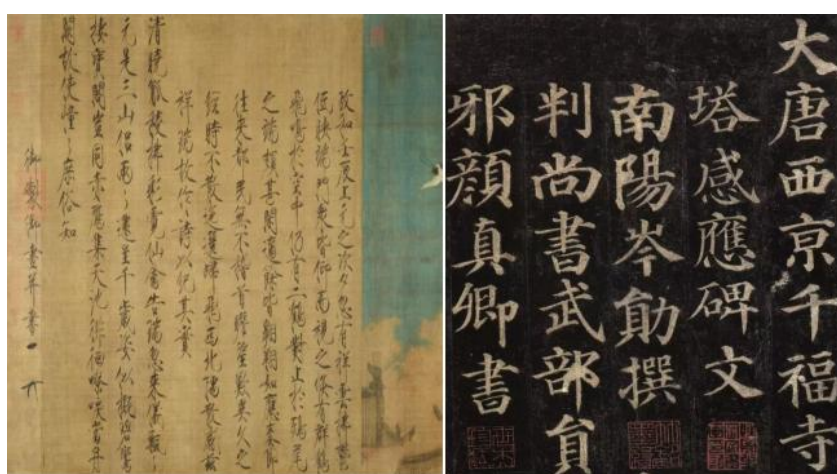 政和壬辰上元之次夕忽有祥雲拂鬱
低映端門衆皆仰而視之倏有群鶴
飛鳴於空中仍有二鶴對止於鴟尾
之端頗甚閑適餘皆翱翔如應奏節
往來都民無不稽首瞻望歎異久之
經時不散迤邐歸飛西北隅散感茲
祥瑞故作詩以紀其實
清曉觚稜拂彩霓仙禽告瑞忽來儀飄々
元是三山侶兩々還呈千歲姿似擬碧鸞
棲寶閣豈同赤鴈集天池徘徊嘹唳當丹
闕故使憧々庶俗知
御製御畫并書
大唐西京千福寺
塔感應碑文
南陽岑勛撰
判尚書武部員
邪顏真卿書